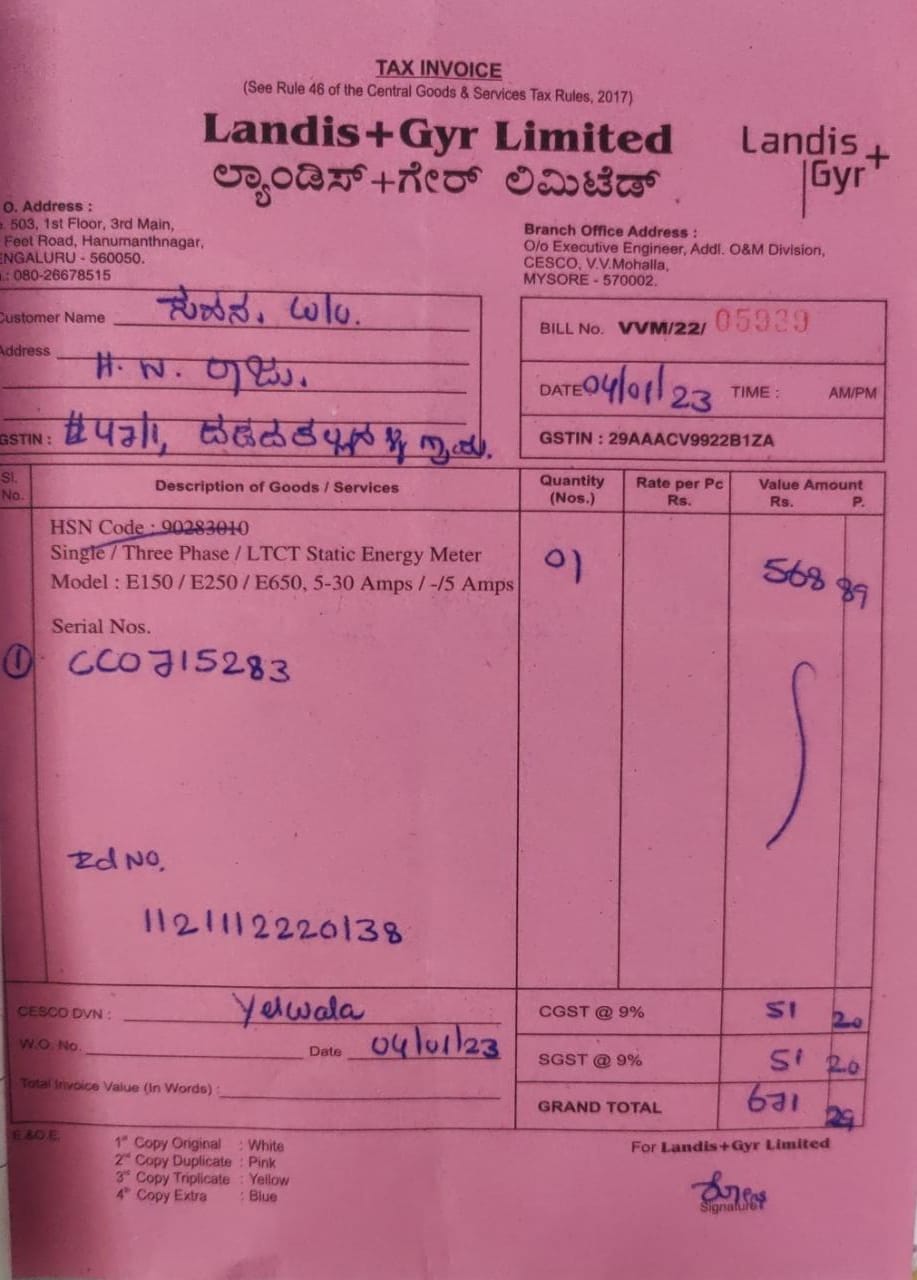 TAX INVOICE
(See Rule 46 of the Central Goods & Services Tax Rules, 2017)
Landis+Gyr Limited
ಲ್ಯಾಂಡಿಸ್+ಗೇರ್ ಲಿಮಿಟೆಡ್
Landis
Gyr+
O. Address :
503, 1st Floor, 3rd Main,
Feet Road, Hanumanthnagar,
ENGALURU - 560050.
: 080-26678515
Branch Office Address :
O/o Executive Engineer, Addl. O&M Division,
CESCO, V.V.Mohalla,
MYSORE - 570002.
Customer Name
Address H. N. ರಾಜು.
GSTIN : #47/1,
BILL No. VVM/22/ 05939
DATE 04/01/23 TIME : AM/PM
GSTIN : 29AAACV9922B1ZA
Sl. No. Description of Goods / Services Quantity (Nos.) Rate per Pc Rs. Value Amount Rs. P.
HSN Code : 90283010
Single / Three Phase / LTCT Static Energy Meter 01 568 89
Model : E150 / E250 / E650, 5-30 Amps / -/5 Amps
Serial Nos.
① CC0715283
Rd NO.
1121112220138
CESCO DVN : Yelwala
W.O. No. Date 04/01/23
Total Invoice Value (In Words) :
CGST @ 9% 51 20
SGST @ 9% 51 20
GRAND TOTAL 671 29
E.&O.E.
1st Copy Original : White
2nd Copy Duplicate : Pink
3rd Copy Triplicate : Yellow
4th Copy Extra : Blue
For Landis+Gyr Limited
Signature